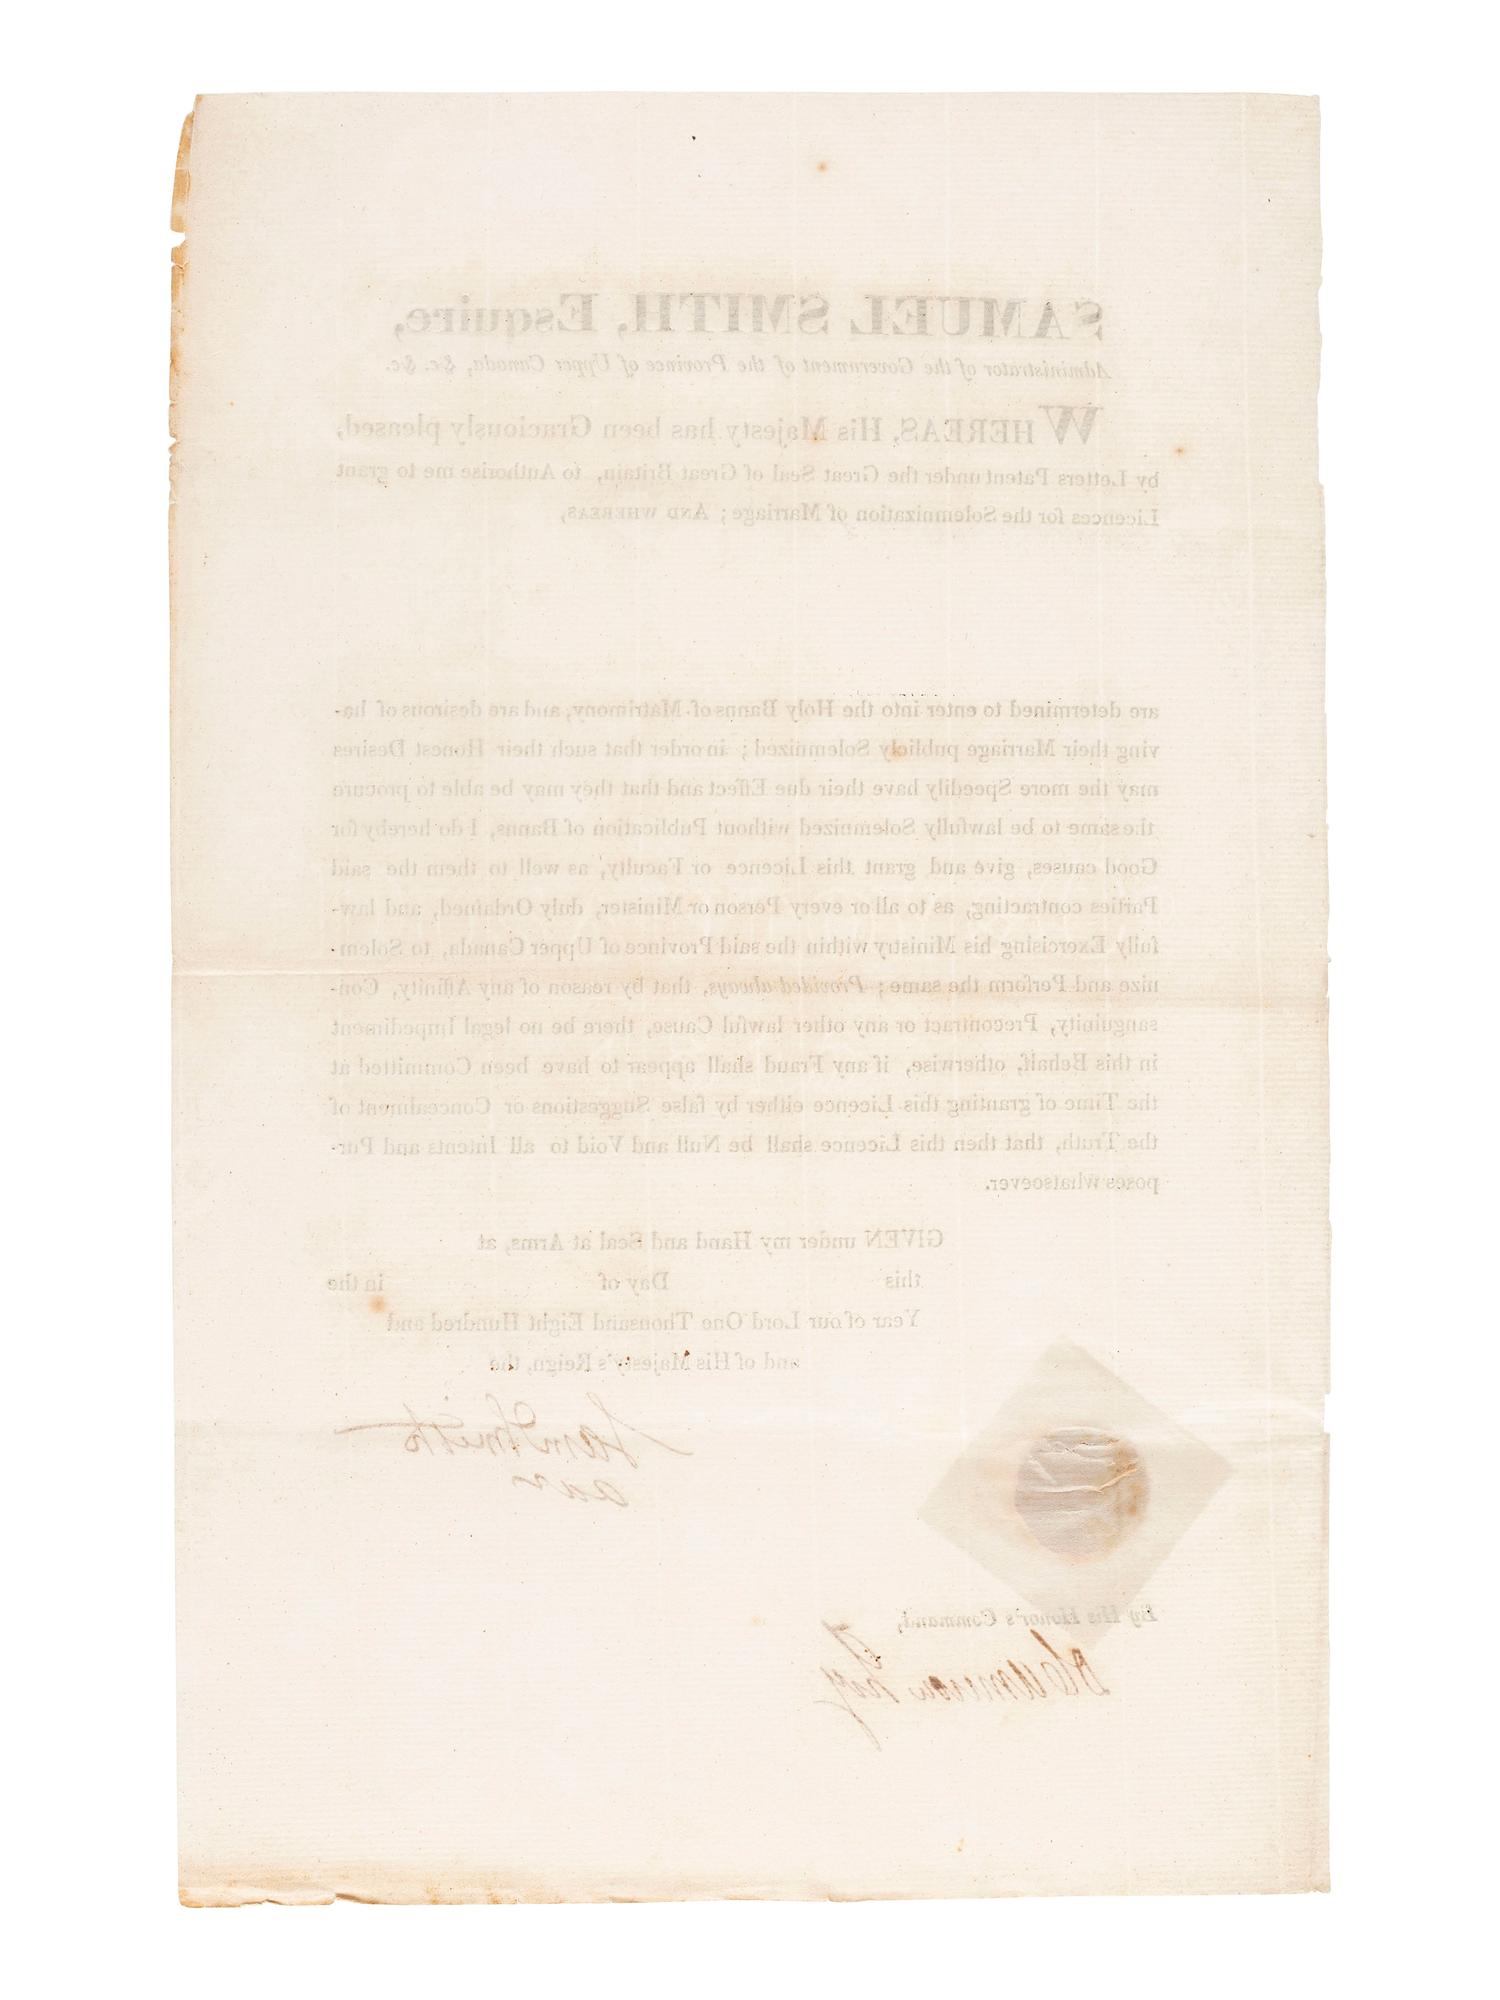 SAMUEL SMITH, Esquire,
Administrator of the Government of the Province of Upper Canada, &c. &c.
WHEREAS, His Majesty has been Graciously pleased,
by Letters Patent under the Great Seal of Great Britain, to Authorise me to grant
Licences for the Solemnization of Marriage; AND WHEREAS,
are determined to enter into the Holy Banns of Matrimony, and are desirous of ha-
ving their Marriage publicly Solemnized; in order that such their Honest Desires
may the more Speedily have their due Effect and that they may be able to procure
the same to be lawfully Solemnized without Publication of Banns, I do hereby for
Good causes, give and grant this Licence or Faculty, as well to them the said
Parties contracting, as to all or every Person or Minister, duly Ordained, and law-
fully Exercising his Ministry within the said Province of Upper Canada, to Solem-
nize and Perform the same; Provided always, that by reason of any Affinity, Con-
sanguinity, Precontract or any other lawful Cause, there be no legal Impediment
in this Behalf, otherwise, if any Fraud shall appear to have been Committed at
the Time of granting this Licence either by false Suggestions or Concealment of
the Truth, that then this Licence shall be Null and Void to all Intents and Pur-
poses whatsoever.
GIVEN under my Hand and Seal at Arms, at
this Day of in the
Year of our Lord One Thousand Eight Hundred and
and of His Majesty's Reign, the
Sam Smith
By His Honor's Command,
DCameron